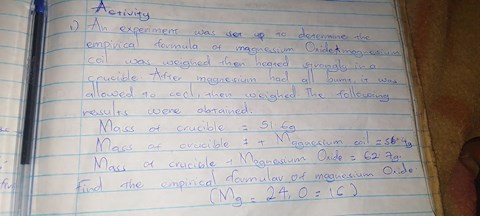 Activity
1) An experiment was set up to determine the
empirical formula of magnesium Oxide. A magnesium
coil was weighed then heated strongly in a
crucible. After magnesium had all burnt, it was
allowed to cool, then weighed. The following
results were obtained.
Mass of crucible = 51.6g
Mass of crucible + Magnesium coil =
Mass of crucible + Magnesium Oxide = 62.7g.
Find the empirical formular of magnesium Oxide
(Mg = 24, O = 16)